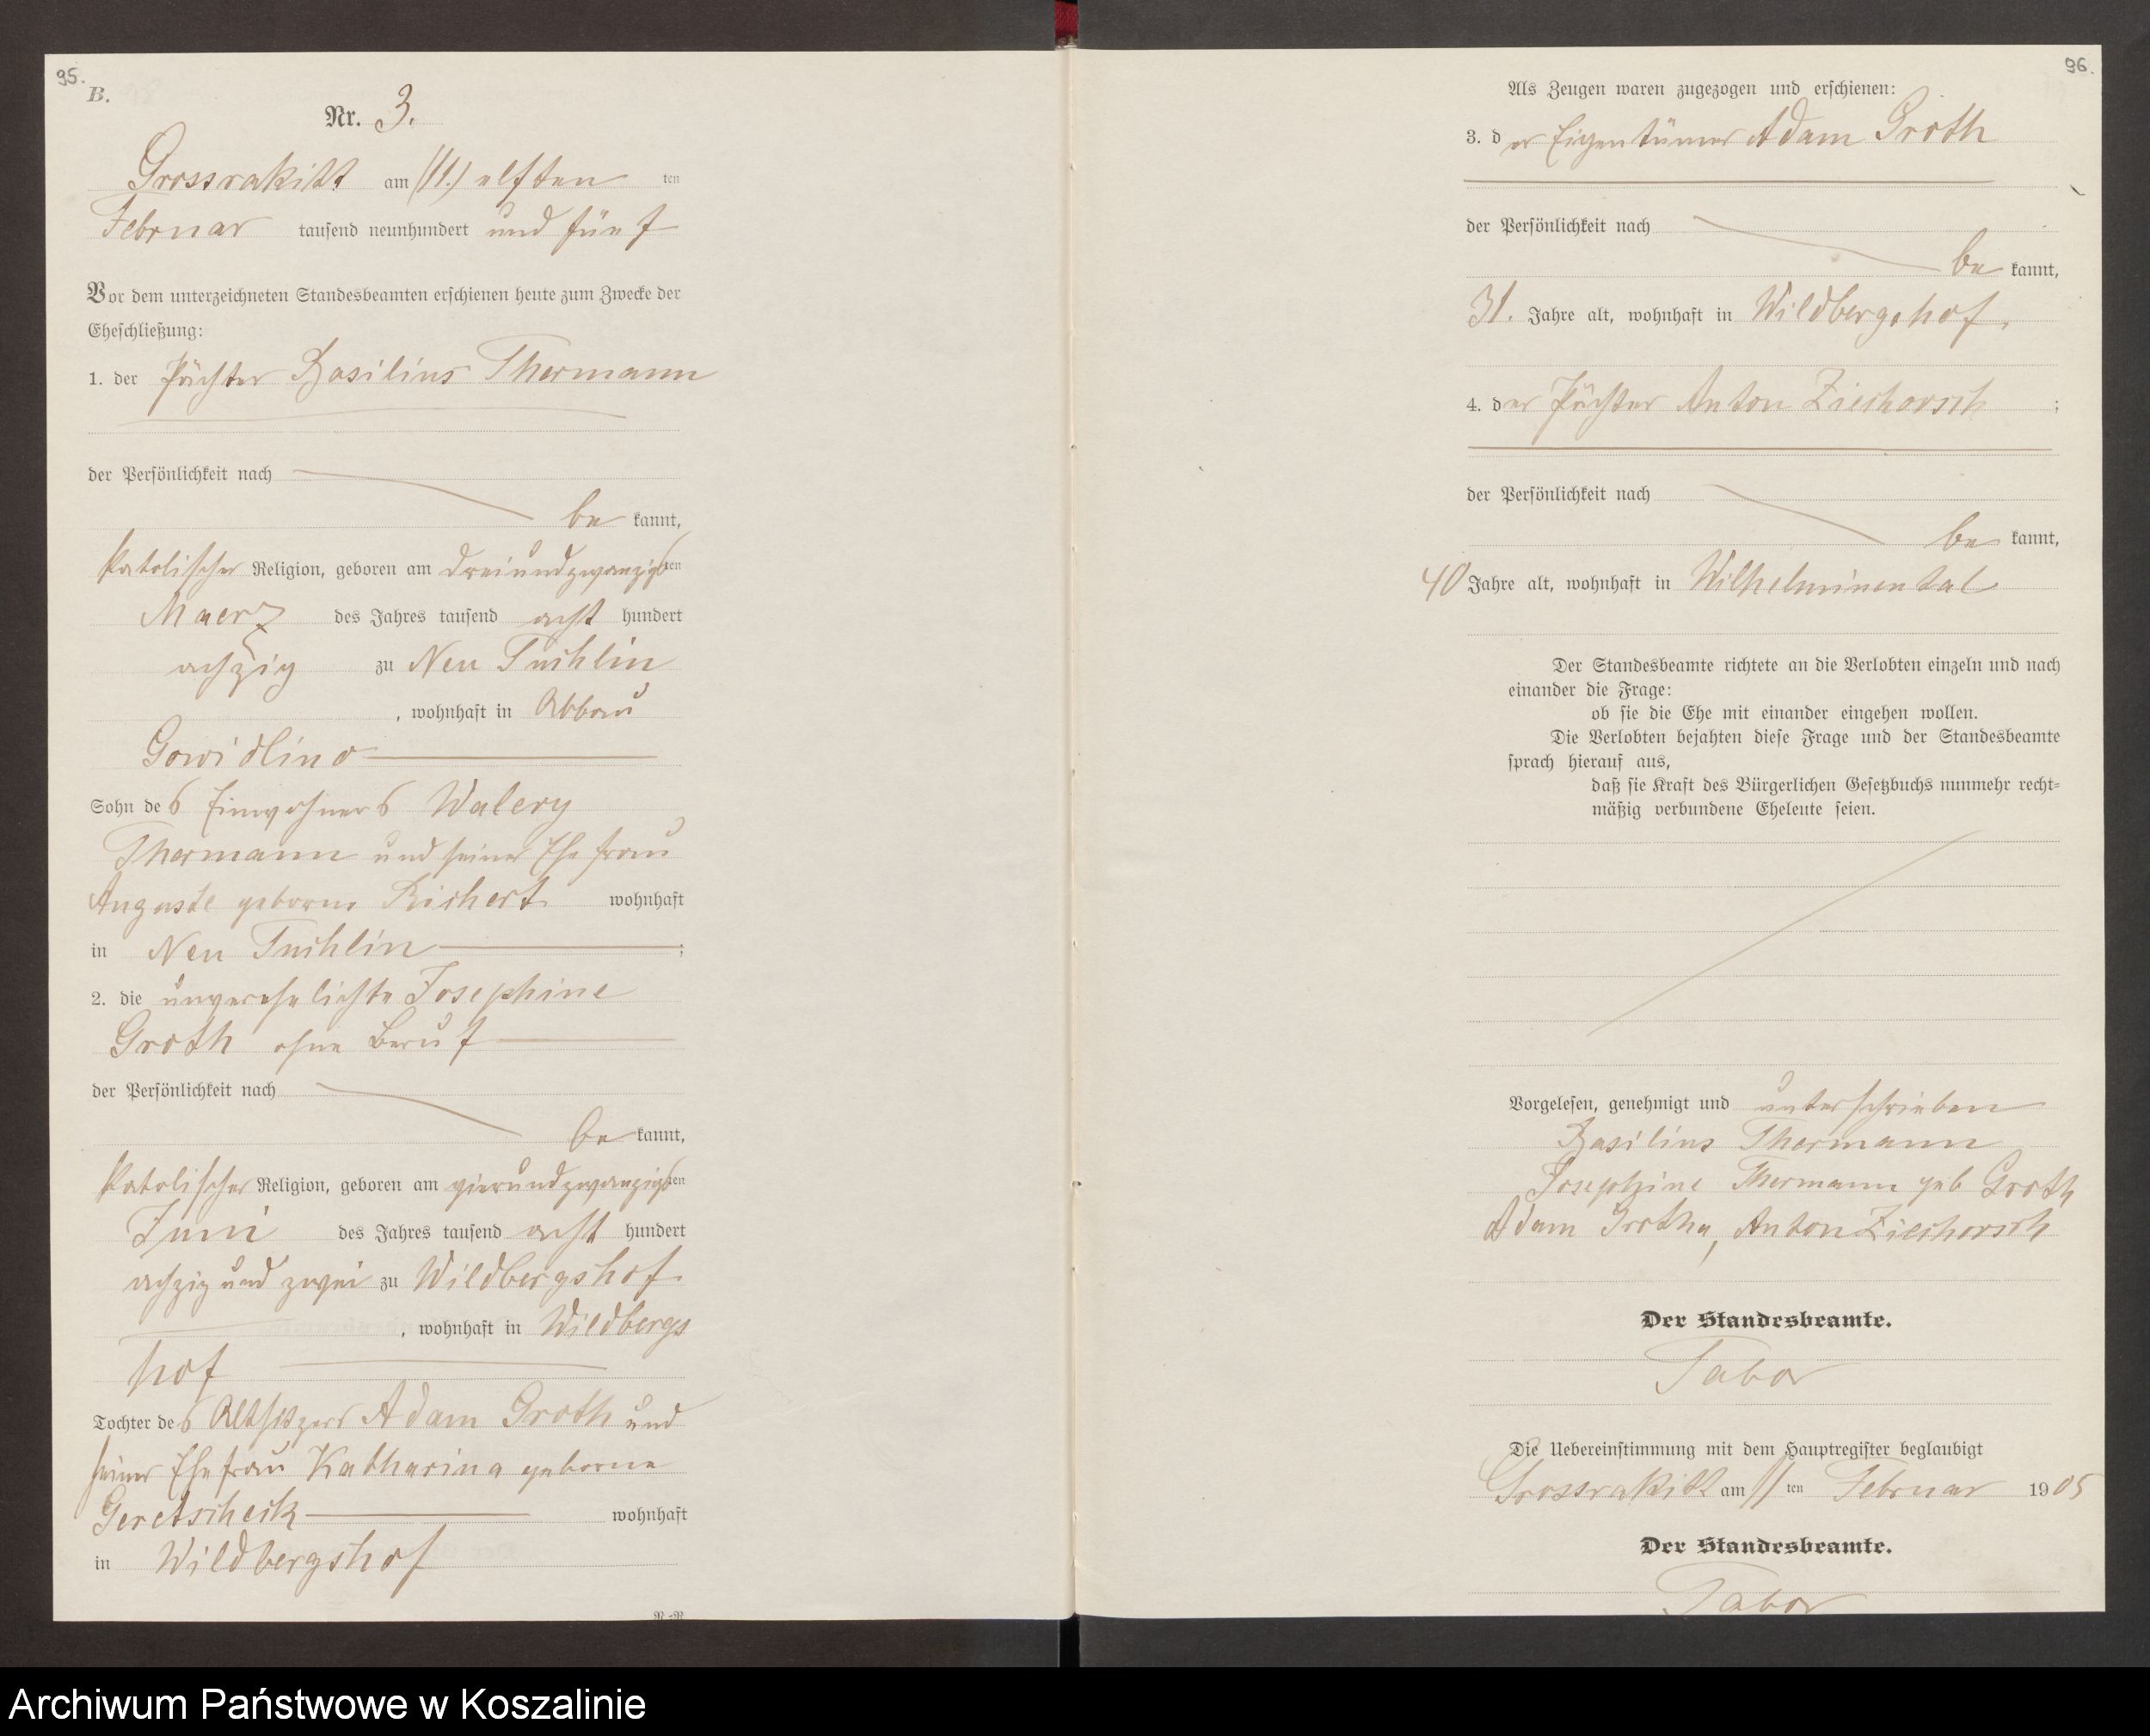 95.
B.
Nr. 3.
Grossrakitt am (11.) elften ten
Februar tausend neunhundert und fünf
Vor dem unterzeichneten Standesbeamten erschienen heute zum Zwecke der
Eheschließung:
1. der Pächter Basilius Thermann
der Persönlichkeit nach
be kannt,
katolischer Religion, geboren am dreiundzwanzigsten
Maerz des Jahres tausend acht hundert
achzig zu Neu Tuchlin
, wohnhaft in Abbau
Gowidlino
Sohn des Einwohners Walery
Thermann und seiner Ehefrau
Auguste geborne Richert wohnhaft
in Neu Tuchlin ;
2. die unverehelichte Josephine
Groth ohne Beruf
der Persönlichkeit nach
be kannt,
katolischer Religion, geboren am vierundzwanzigsten
Juni des Jahres tausend acht hundert
achzig und zwei zu Wildbergshof
, wohnhaft in Wildbergs
hof
Tochter des Altsitzers Adam Groth und
seiner Ehefrau Katharina geborne
Geretscheck wohnhaft
in Wildbergshof
96.
Als Zeugen waren zugezogen und erschienen:
3. der Eigentümer Adam Groth
der Persönlichkeit nach
be kannt,
31. Jahre alt, wohnhaft in Wildbergshof.
4. der Pächter Anton Ziechorsch ;
der Persönlichkeit nach
be kannt,
40 Jahre alt, wohnhaft in Wilhelminental
Der Standesbeamte richtete an die Verlobten einzeln und nach
einander die Frage:
ob sie die Ehe mit einander eingehen wollen.
Die Verlobten bejahten diese Frage und der Standesbeamte
sprach hierauf aus,
daß sie Kraft des Bürgerlichen Gesetzbuchs nunmehr recht=
mäßig verbundene Eheleute seien.
Vorgelesen, genehmigt und unterschrieben
Basilius Thermann
Josephine Thermann geb Groth
Adam Grotha, Anton Ziechorsch
Der Standesbeamte.
Tabor
Die Uebereinstimmung mit dem Hauptregister beglaubigt
Grossrakitt am 11 ten Februar 1905
Der Standesbeamte.
Tabor
Archiwum Państwowe w Koszalinie